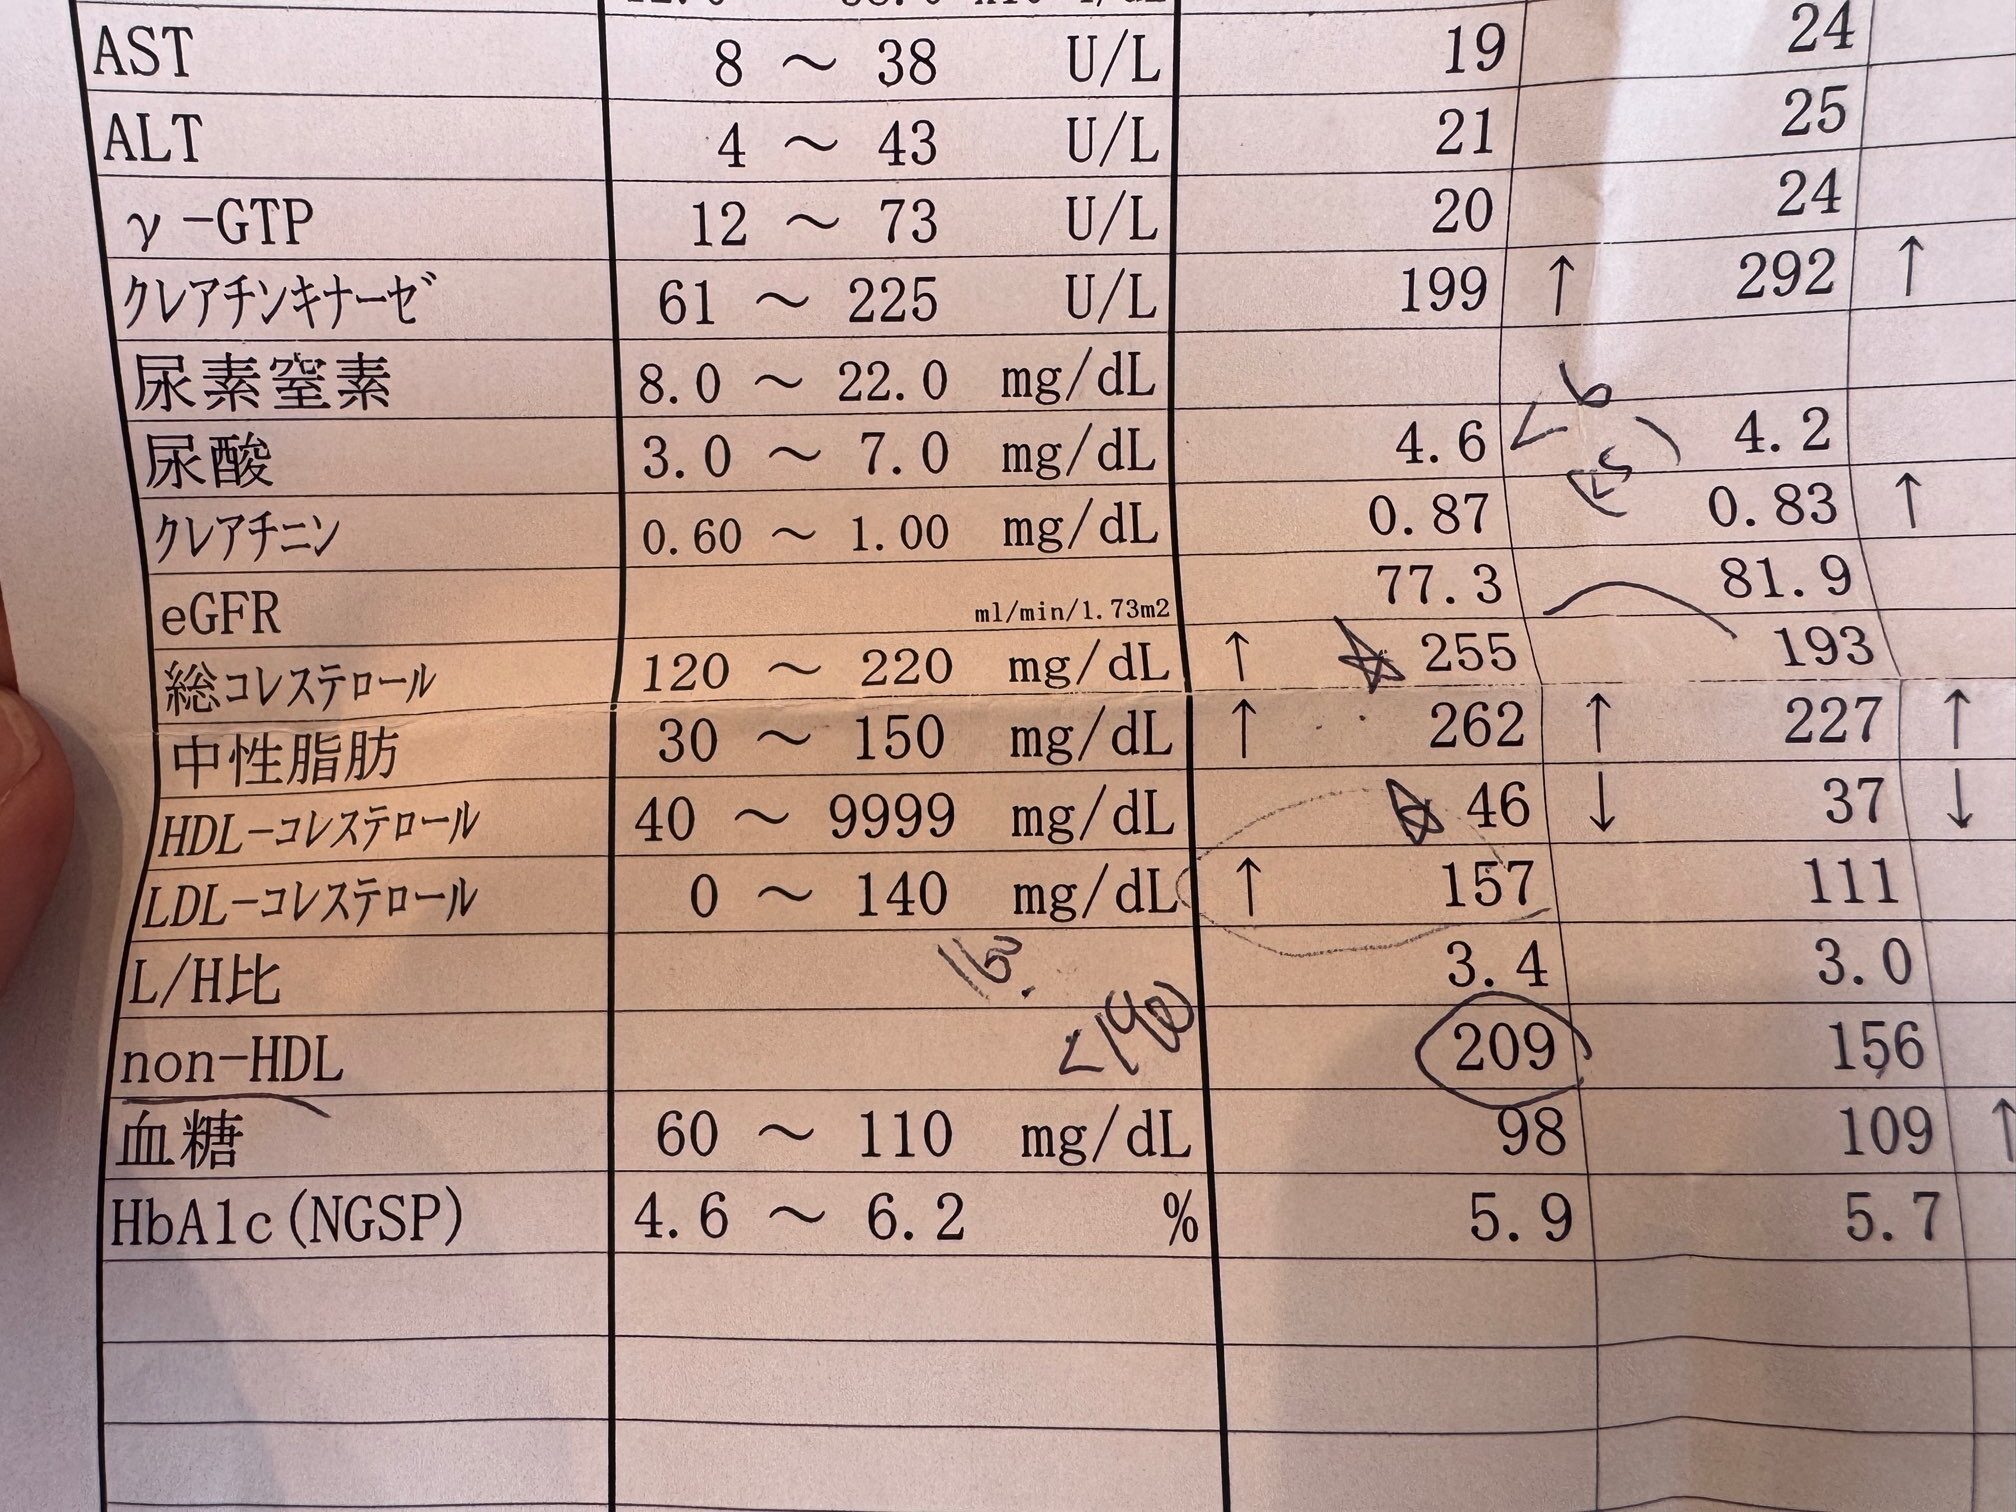 AST 8 ～ 38 U/L 19 24
ALT 4 ～ 43 U/L 21 25
γ-GTP 12 ～ 73 U/L 20 24
クレアチンキナーゼ 61 ～ 225 U/L 199 ↑ 292 ↑
尿素窒素 8.0 ～ 22.0 mg/dL
尿酸 3.0 ～ 7.0 mg/dL 4.6 <6 4.2
クレアチニン 0.60 ～ 1.00 mg/dL 0.87 0.83 ↑
eGFR ml/min/1.73m2 77.3 81.9
総コレステロール 120 ～ 220 mg/dL ↑ 255 193
中性脂肪 30 ～ 150 mg/dL ↑ 262 ↑ 227 ↑
HDL-コレステロール 40 ～ 9999 mg/dL 46 ↓ 37 ↓
LDL-コレステロール 0 ～ 140 mg/dL ↑ 157 111
L/H比 160. 3.4 3.0
non-HDL <190 209 156
血糖 60 ～ 110 mg/dL 98 109 ↑
HbA1c(NGSP) 4.6 ～ 6.2 % 5.9 5.7